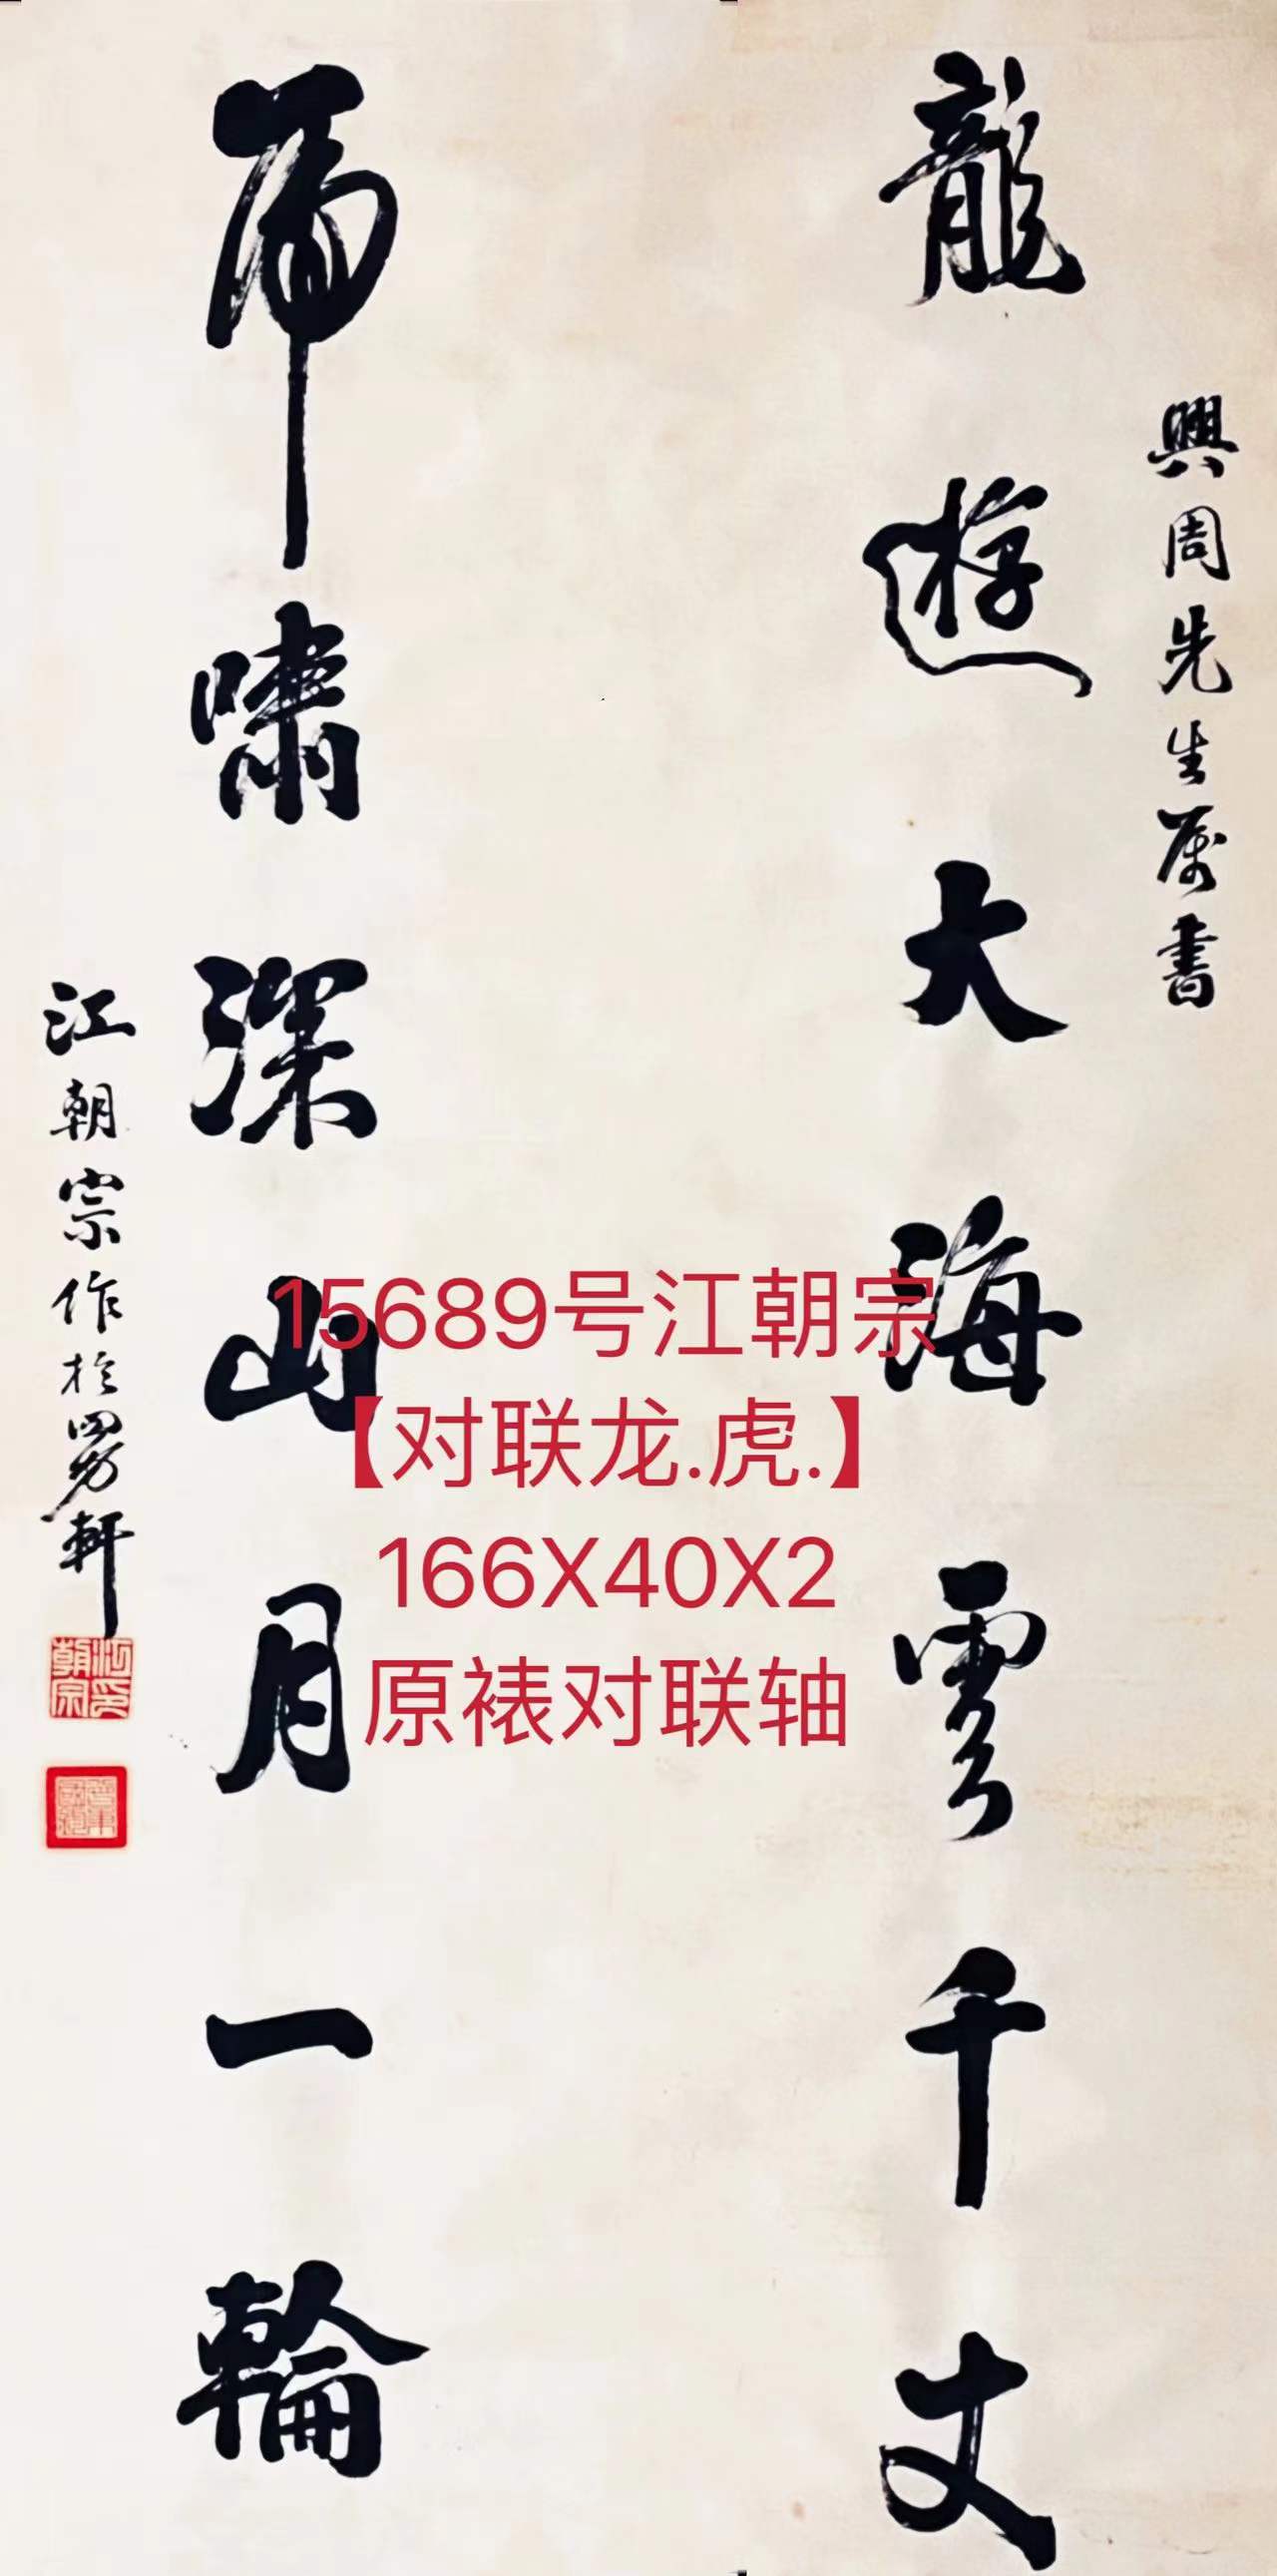 興周先生属書
龍遊大海雲千丈
虎嘯深山月一輪
江朝宗作於四勿軒
江朝宗印
15689号江朝宗
【对联龙.虎.】
166X40X2
原裱对联轴